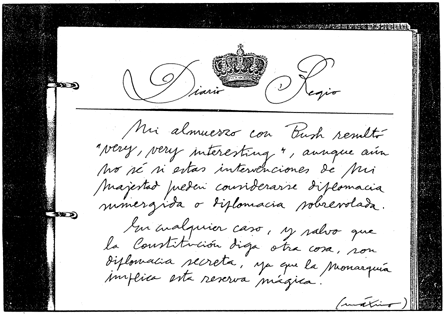 Diario Regio
Mi almuerzo con Bush resultó
"very, very interesting", aunque aún
no sé si estas intervenciones de Mi
Majestad pueden considerarse diplomacia
sumergida o diplomacia sobrevolada.
En cualquier caso, y salvo que
la Constitución diga otra cosa, son
diplomacia secreta, ya que la Monarquía
implica esta reserva mágica.
(máximo)